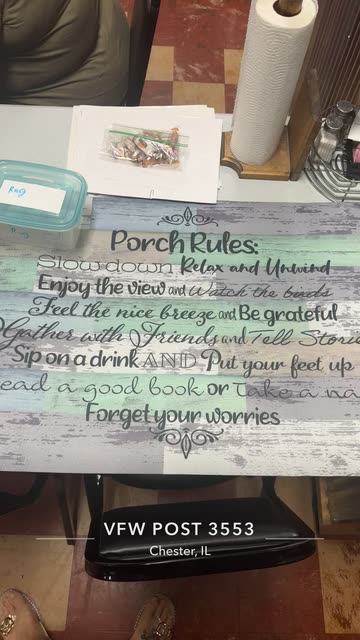 Porch Rules:
Slow down Relax and Unwind
Enjoy the view and Watch the birds
Feel the nice breeze and Be grateful
Gather with Friends and Tell Stories
Sip on a drink AND Put your feet up
ead a good book or Take a na
Forget your worries
VFW POST 3553
Chester, IL